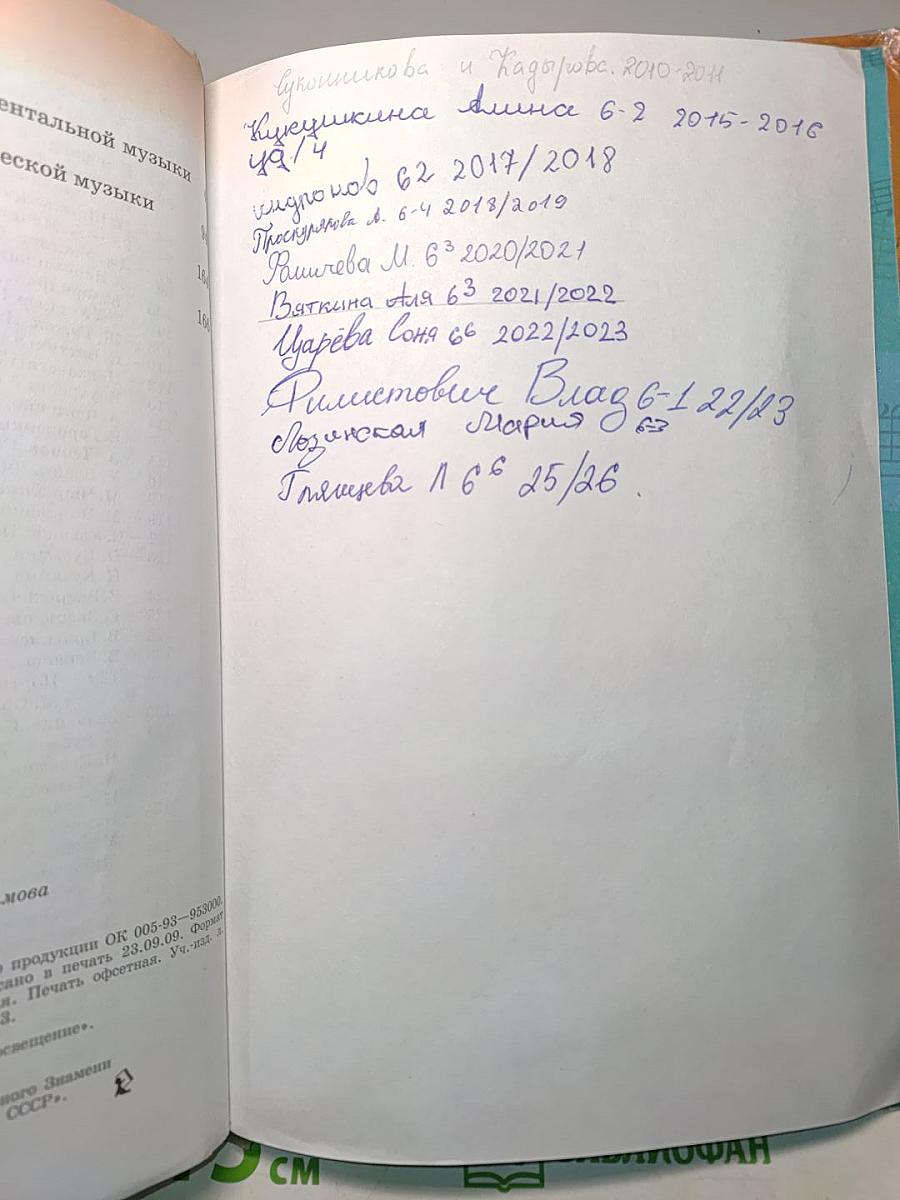 ентальной музыки
еской музыки
мова
продукции ОК 005-93—953000.
сано в печать 23.09.09. Формат
я. Печать офсетная. Уч.-изд. л.
3.
освещение».
ного Знамени
СССР».
Суконникова и Кадырова. 2010-2011
Кукушкина Алина 6-2 2015-2016
62 2017/2018
Проскурякова А. 6-4 2018/2019
Фомичева М. 6³ 2020/2021
Вяткина Аля 6³ 2021/2022
Царёва Соня 6⁶ 2022/2023
Филистович Влад 6-1 22/23
Лозинская Мария 6-3
Л 6⁶ 25/26.
см